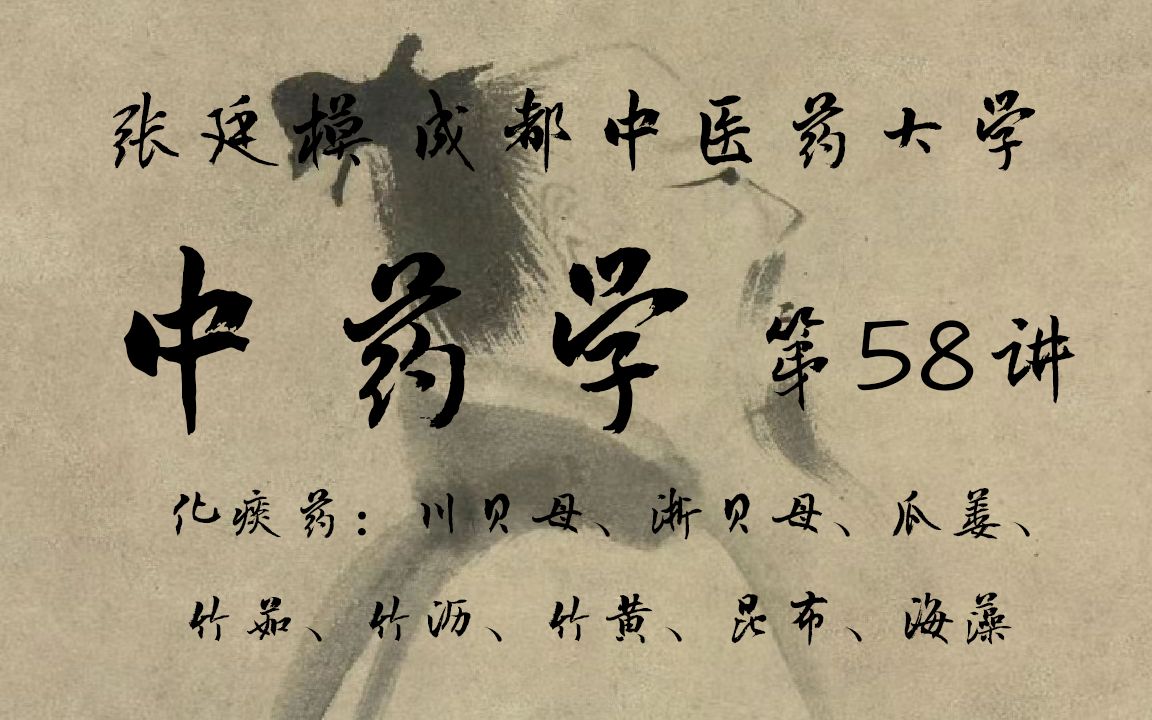 张廷模成都中医药大学
中药学 第58讲
化痰药：川贝母、浙贝母、瓜蒌、
竹茹、竹沥、竹黄、昆布、海藻